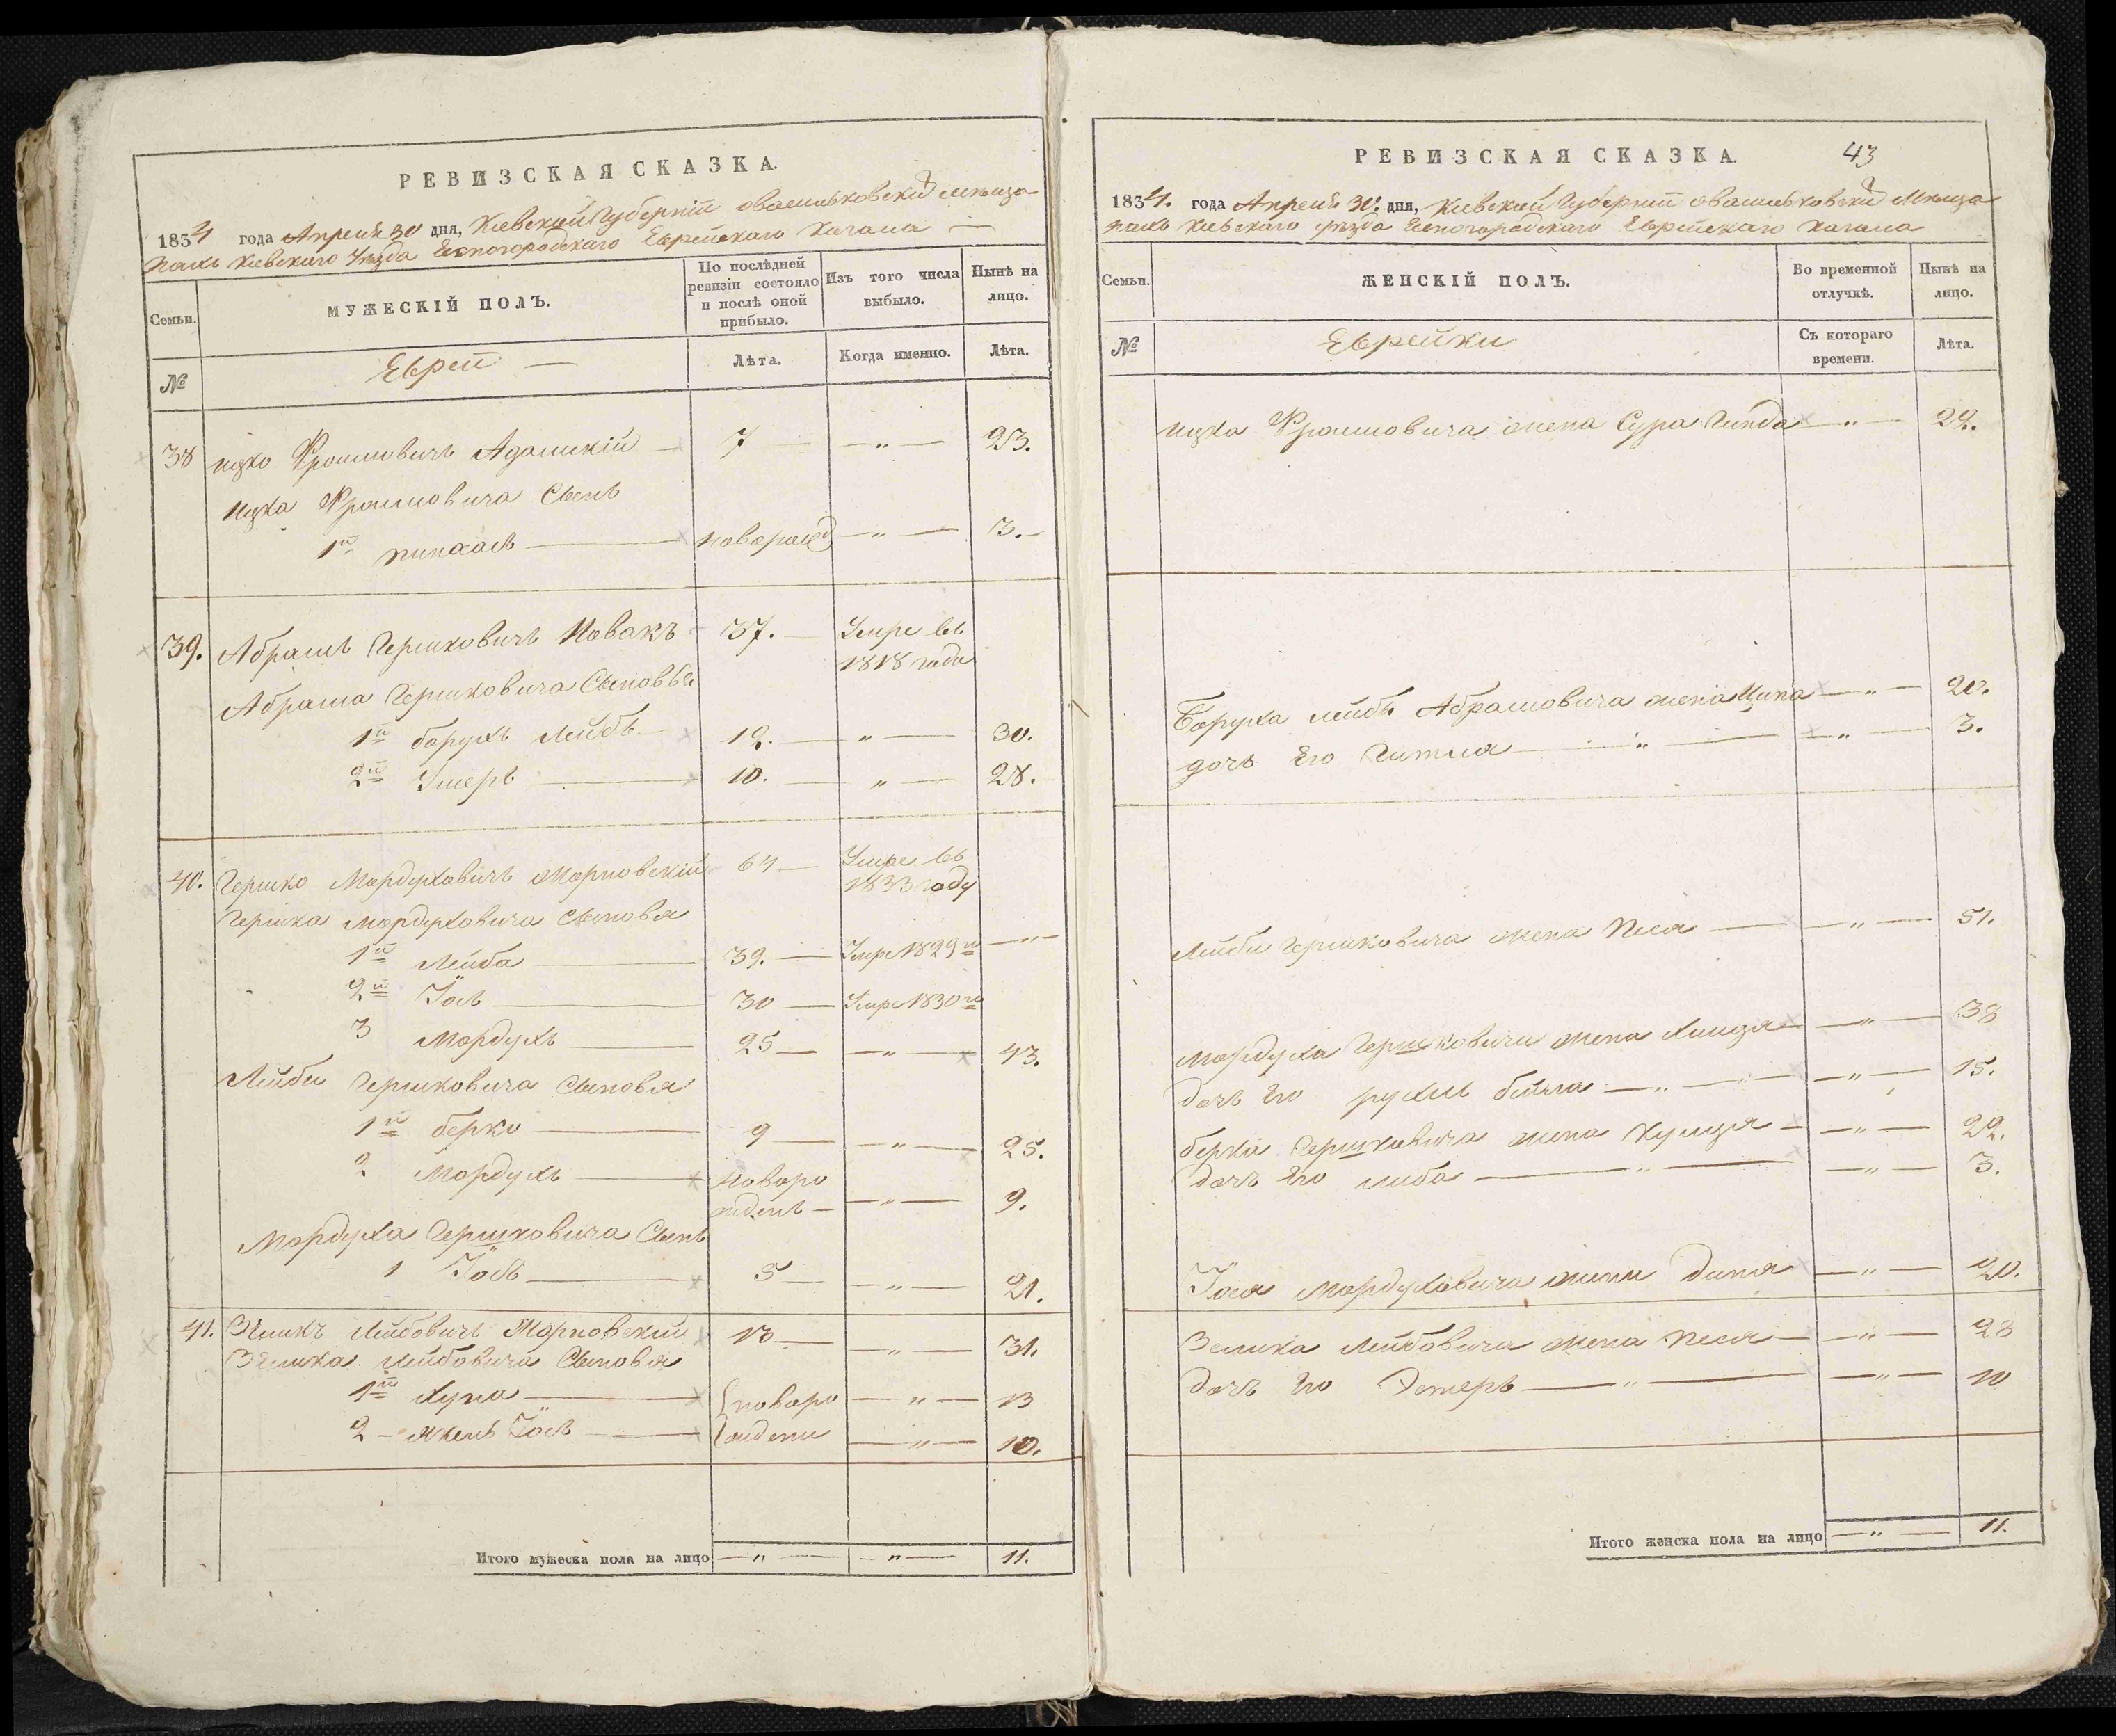 РЕВИЗСКАЯ СКАЗКА.
1834 года Апреля 30 дня, Киевской Губернiи
Киевскаго Уезда Еврейскаго Кагала
Семьи.
МУЖЕСКІЙ ПОЛЪ.
По послѣдней ревизіи состояло и послѣ оной прибыло.
Изъ того числа выбыло.
Нынѣ на лицо.
№
Евреи
Лѣта.
Когда именно.
Лѣта.
38 ицко Фроимовичъ 7 — „ — 23.
ицка Фроимовича Сынъ
1й пинхасъ новорожд — „ — 3.
39. Абрамъ Гершковичъ Новакъ 37. Умре въ
1818 года
Абрама Гершковича Сыновья
1й борухъ Лейбъ 12. — „ — 30.
2й Умеръ 10. — „ — 28.
40. Гершко Мордуховичъ 64 Умре въ
1833 году
Гершка Мордуховича Сыновя
1й Лейба 39. Умре 1829 — „ —
2й Іось 30 Умре 1830
3 Мордухъ 25 — „ — 43.
Лейби Гершковича Сыновя
1й берко 9 — „ — 25.
2 Мордухъ новоро
жденъ — „ — 9.
Мордуха Гершковича Сынъ
1 Іось 5 — „ — 21.
41. Лейбовичъ 13 — „ — 31.
Лейбовича Сыновя
1й Хуна новоро — „ — 13
2 Іось ждени — „ — 10.
Итого мужеска пола на лицо — „ — — „ — 11.
РЕВИЗСКАЯ СКАЗКА. 43
1834. года Апреля 30. дня, Киевской Губернiи
Киевскаго уезда Еврейскаго Кагала
Семьи.
ЖЕНСКІЙ ПОЛЪ.
Во временной отлучкѣ.
Нынѣ на лицо.
№
Еврейки
Съ котораго времени.
Лѣта.
ицка Фроимовича жена Сура Гинда — „ — 22.
Боруха лейбы Абрамовича жена Ципа — „ — 20.
дочь Его Гитля — „ — 3.
Лейби Гершковича жена Песя — „ — 51.
Мордуха Гершковича жена — „ — 38
дочь Его рухль бейла — „ — 15.
берка Гершковича жена — „ — 22.
дочь Его либа — „ — 3.
Іося Мордуховича жена Диня — „ — 20.
Зелика Лейбовича жена Песя — „ — 28
дочь Его Эстеръ — „ — 10
Итого женска пола на лицо — „ — 11.